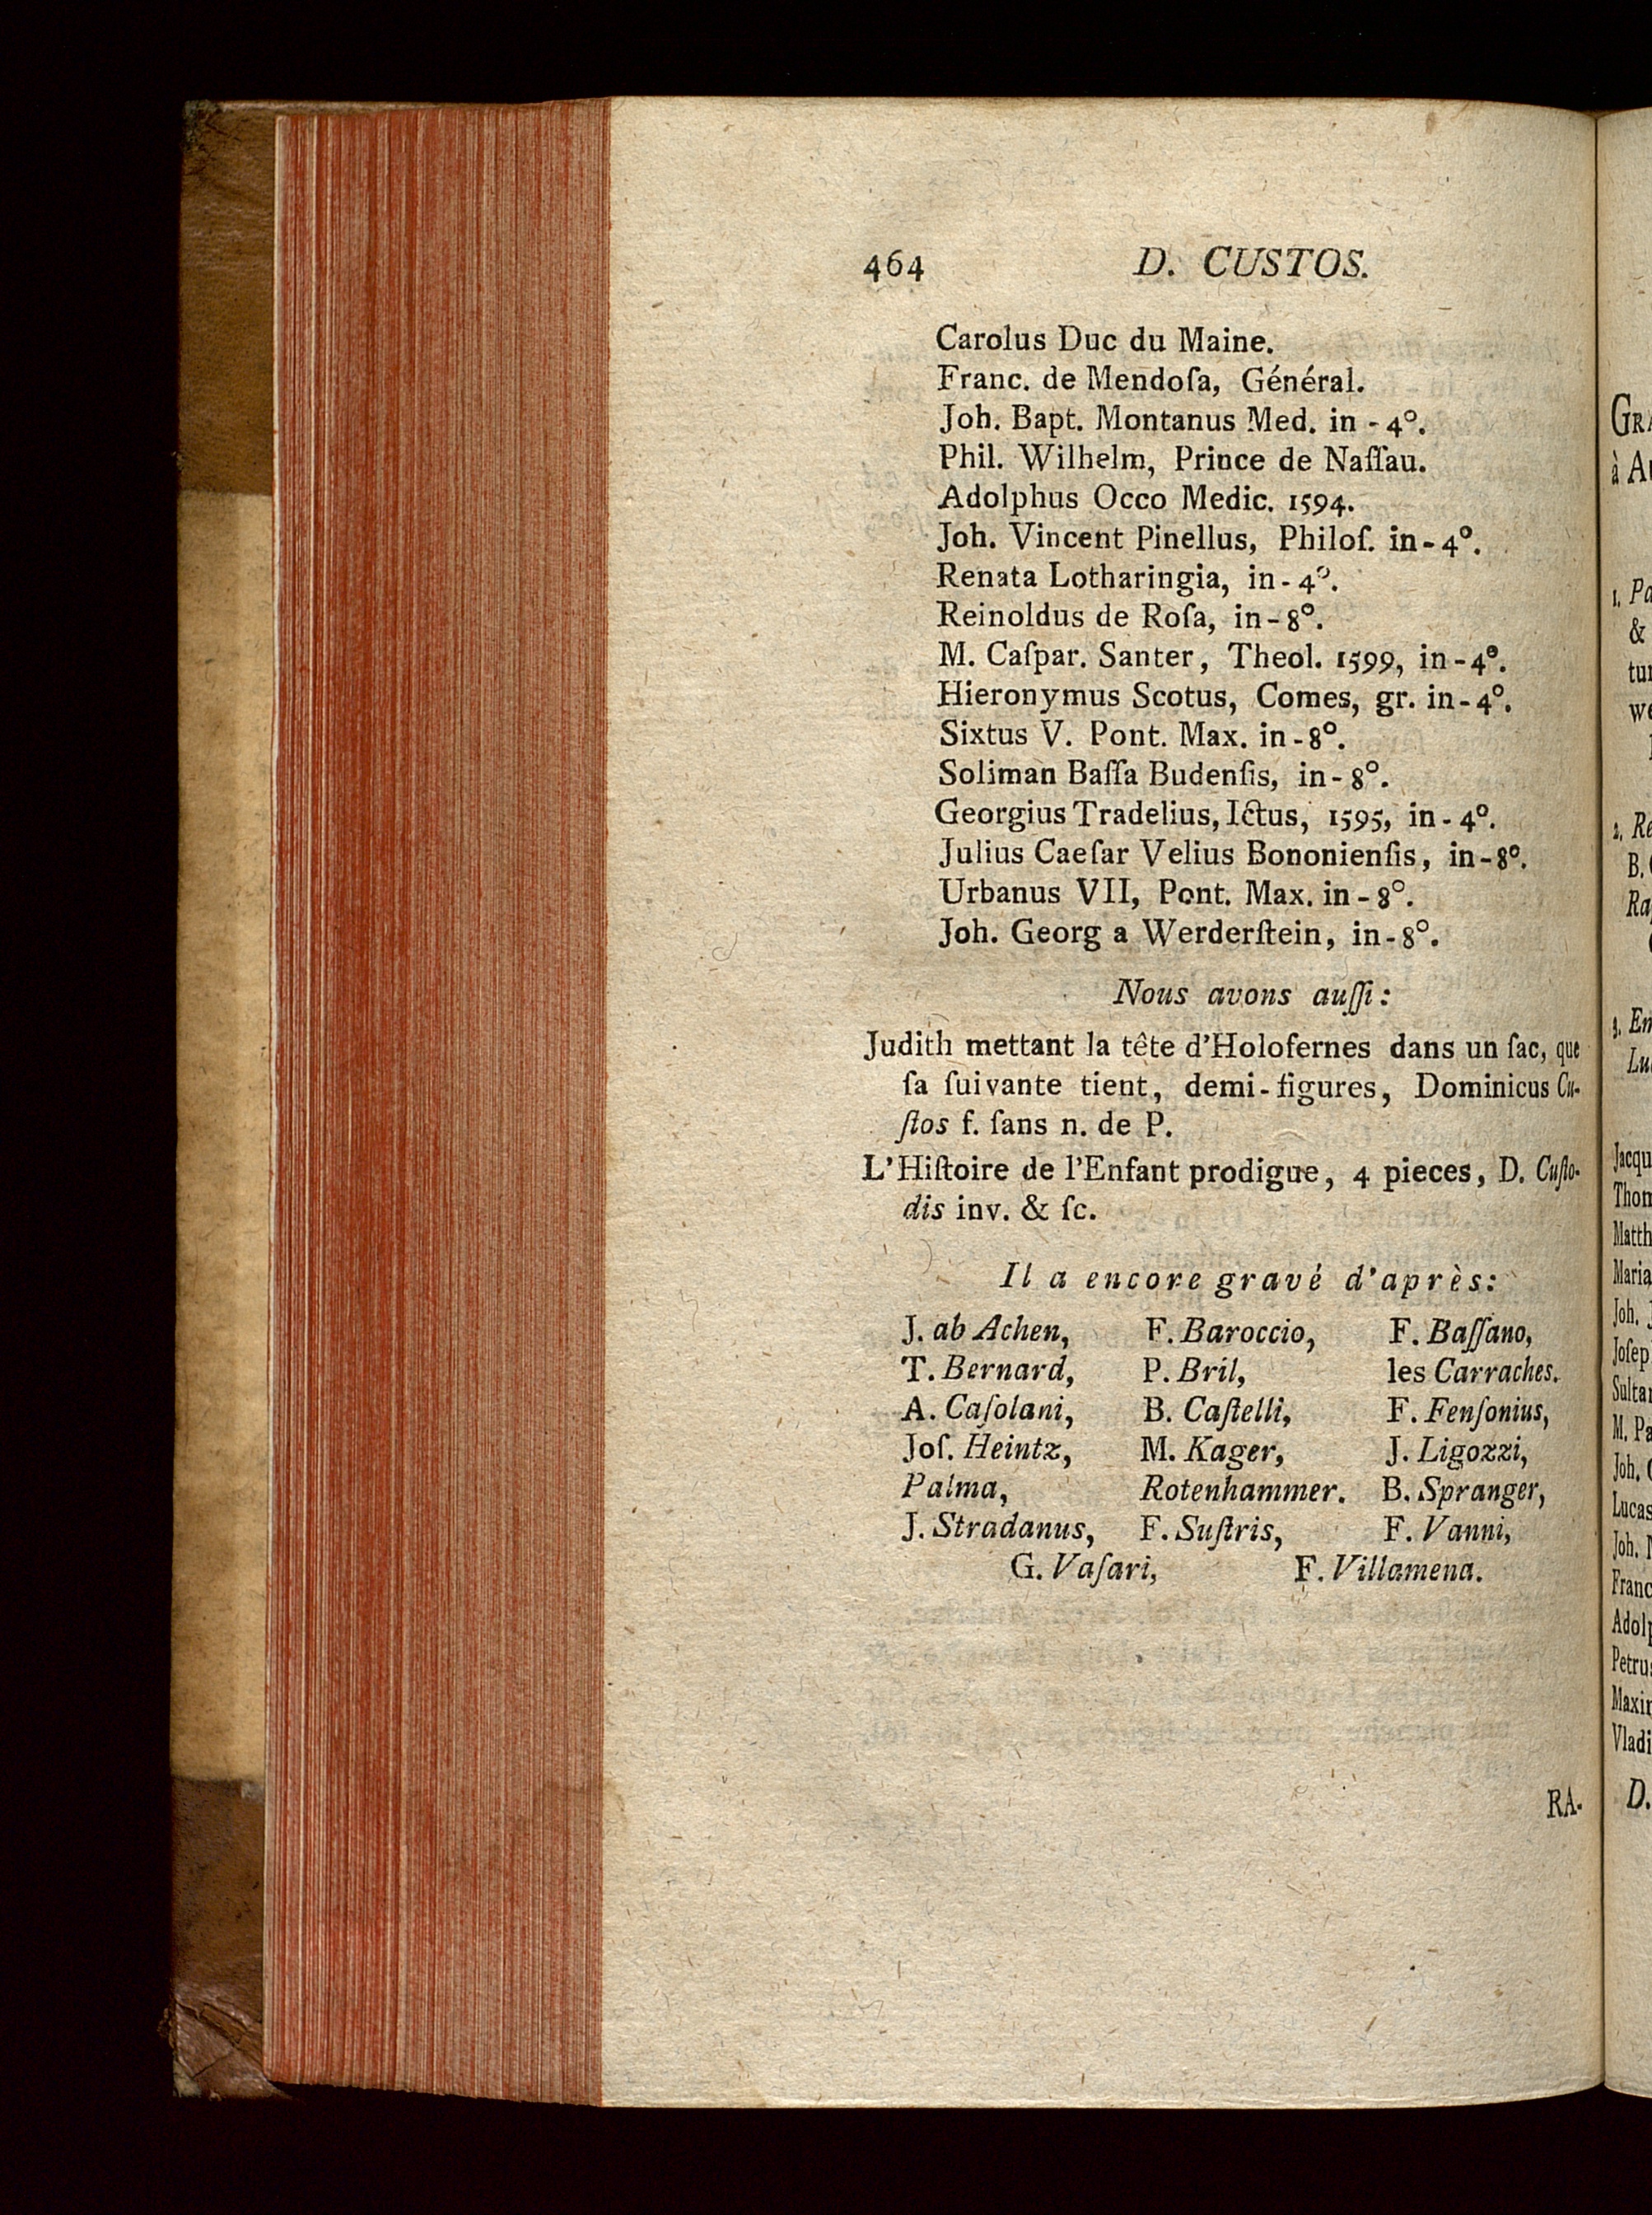 464 D. CUSTOS.
Carolus Duc du Maine.
Franc. de Mendoſa, Général.
Joh. Bapt. Montanus Med. in - 4°.
Phil. Wilhelm, Prince de Naſſau.
Adolphus Occo Medic. 1594.
Joh. Vincent Pinellus, Philoſ. in - 4°.
Renata Lotharingia, in - 4°.
Reinoldus de Roſa, in - 8°.
M. Caſpar. Santer, Theol. 1599, in - 4°.
Hieronymus Scotus, Comes, gr. in - 4°.
Sixtus V. Pont. Max. in - 8°.
Soliman Baſſa Budenſis, in - 8°.
Georgius Tradelius, Ictus, 1595, in - 4°.
Julius Caeſar Velius Bononienſis, in - 8°.
Urbanus VII, Pont. Max. in - 8°.
Joh. Georg a Werderſtein, in - 8°.
Nous avons auſſi:
Judith mettant la tête d'Holofernes dans un ſac, que
ſa ſuivante tient, demi-figures, Dominicus Cu-
ſtos f. ſans n. de P.
L'Hiſtoire de l'Enfant prodigue, 4 pieces, D. Cuſto-
dis inv. & ſc.
Il a encore gravé d'après:
J. ab Achen, F. Baroccio, F. Baſſano,
T. Bernard, P. Bril, les Carraches.
A. Caſolani, B. Caſtelli, F. Fenſonius,
Joſ. Heintz, M. Kager, J. Ligozzi,
Palma, Rotenhammer. B. Spranger,
J. Stradanus, F. Suſtris, F. Vanni,
G. Vaſari, F. Villamena.
RA-
GRA
à Au
1. Pa
&
tur
we
2. Re
B.
Ra
3. En
Lu
Jacqu
Thom
Matth
Maria
Joh. J
Joſep
Sultan
M. Pa
Joh.
Lucas
Joh.
Franc
Adolp
Petrus
Maxim
Vladi
D.